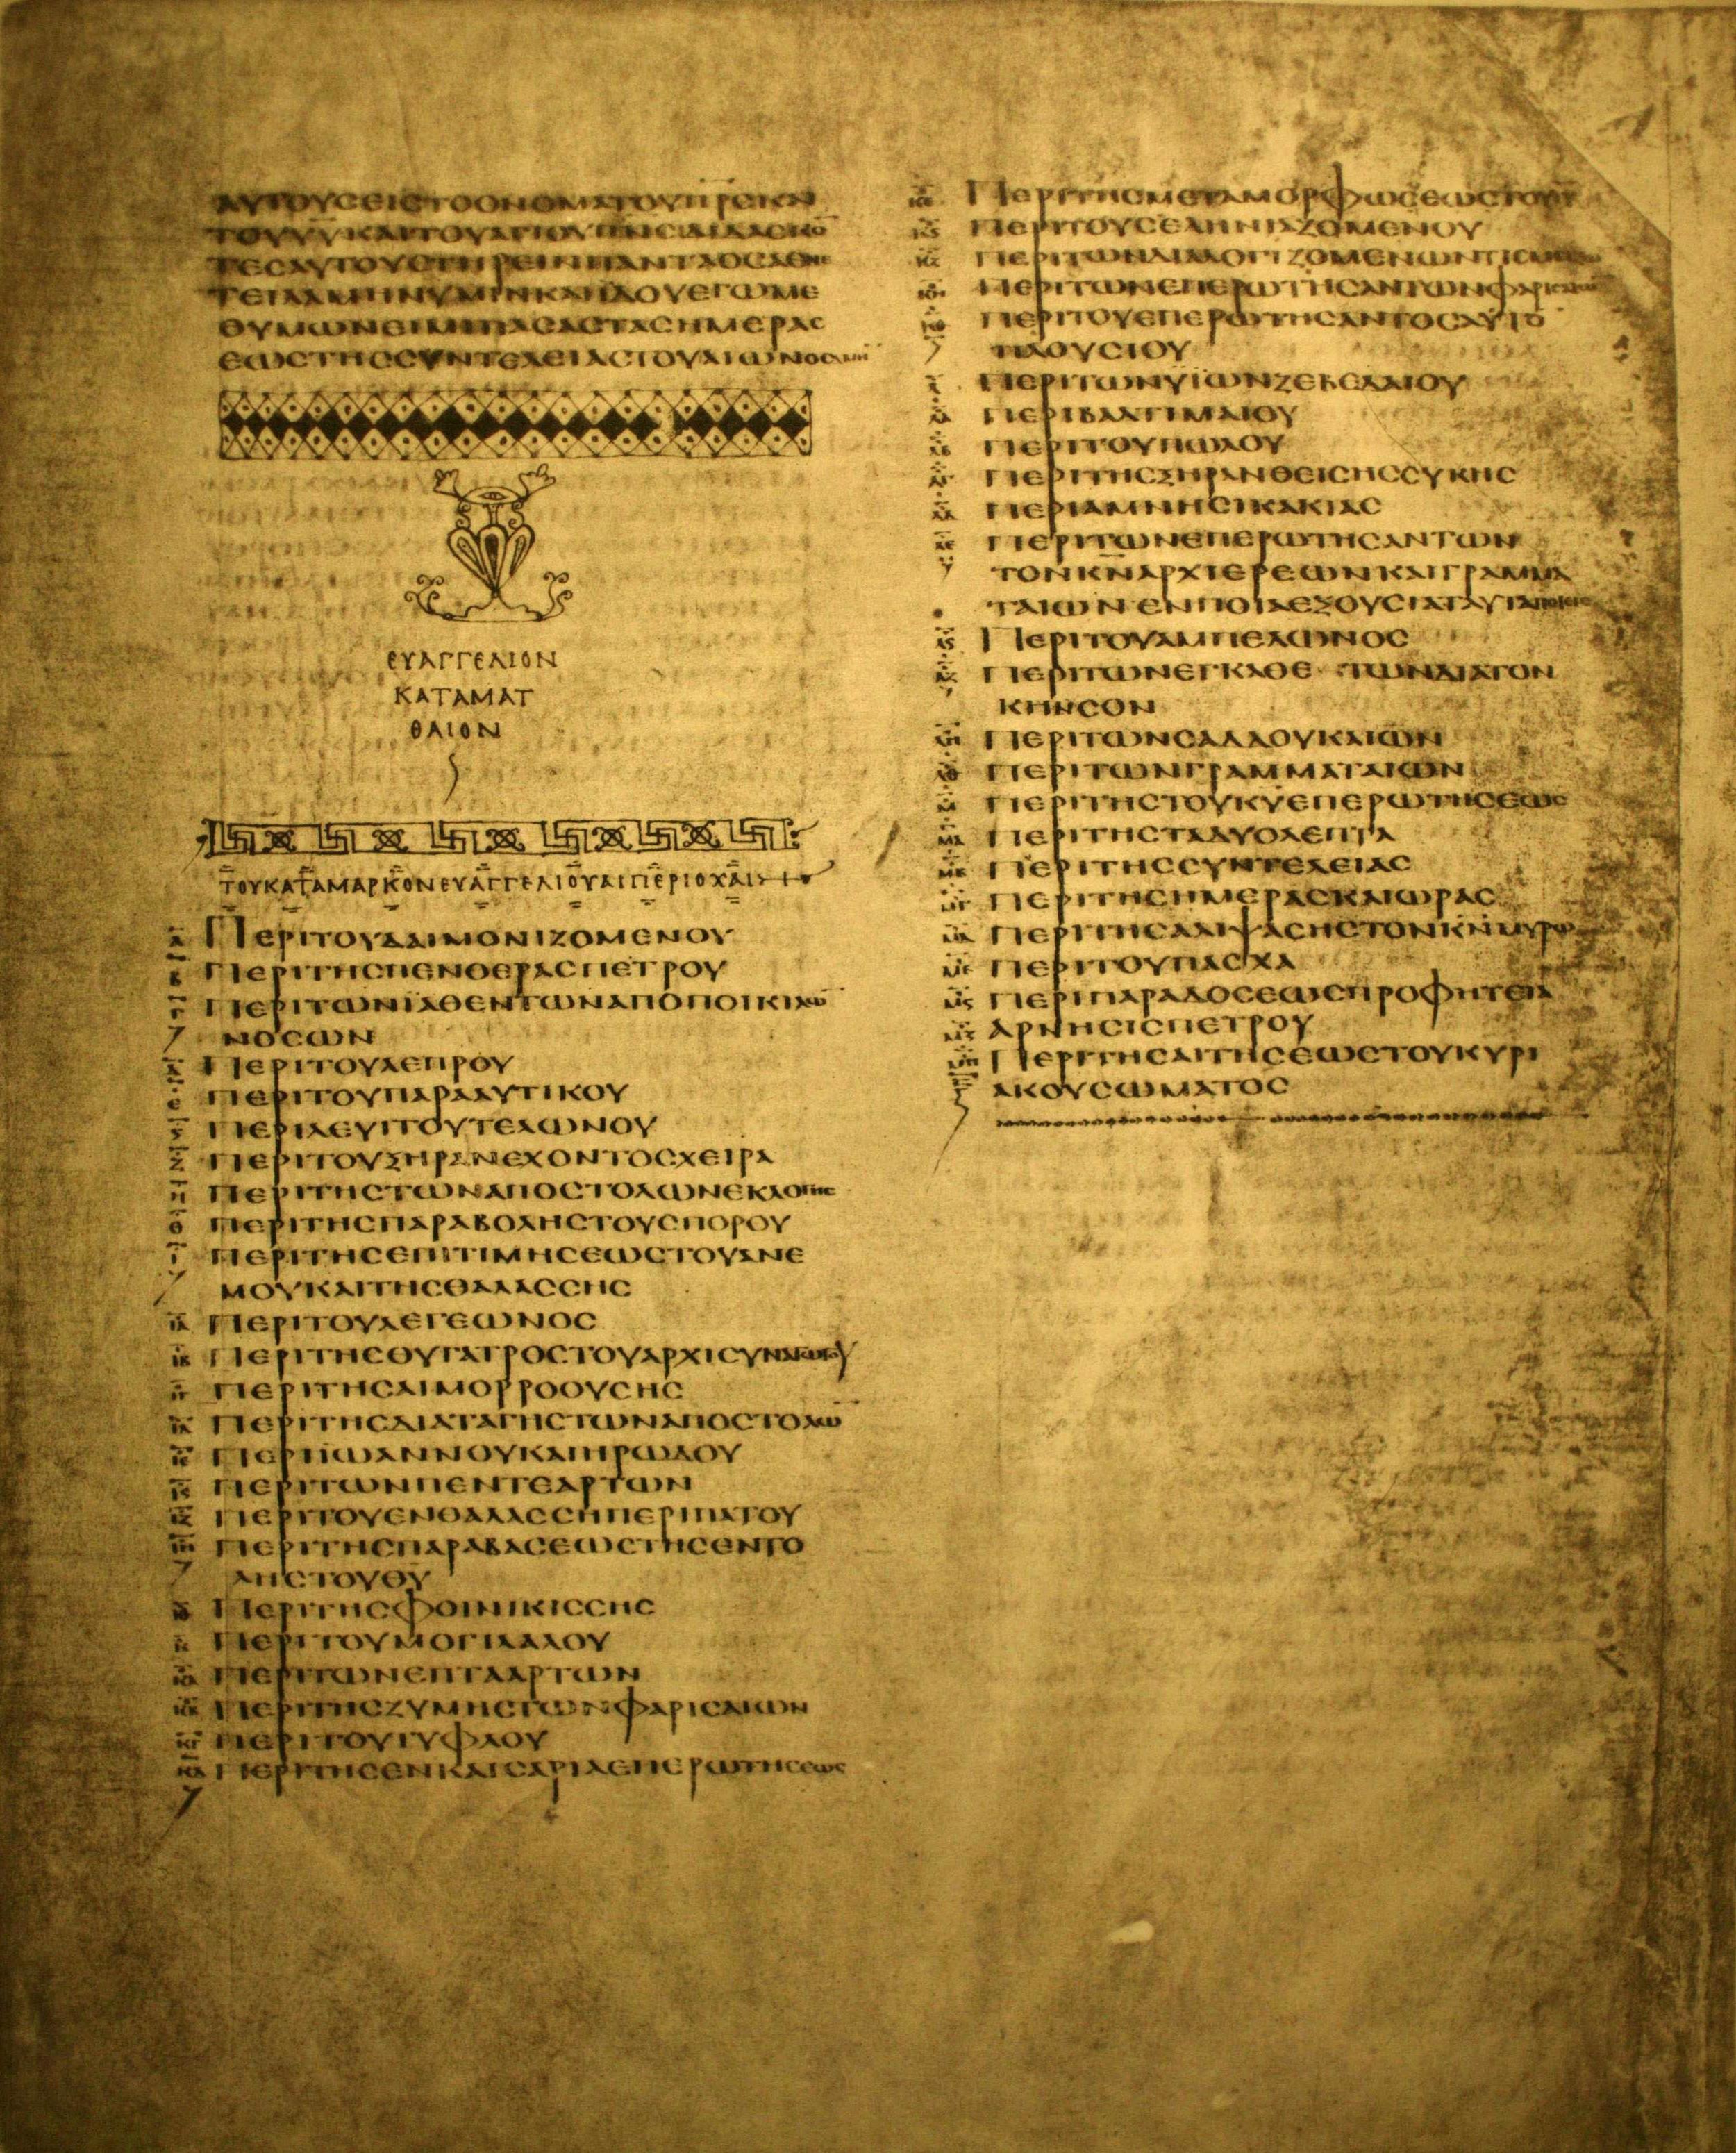 ΑΥΤΟΥΣΕΙΣΤΟΟΝΟΜΑΤΟΥΠΡΣΚΑΙ
ΤΟΥΥΥΚΑΙΤΟΥΑΓΙΟΥΠΝΣΔΙΔΑΣΚΟ
ΤΕΣΑΥΤΟΥΣΤΗΡΕΙΝΠΑΝΤΑΟΣΑΕΝΕ
ΤΕΙΛΑΜΗΝΥΜΙΝΚΑΙΙΔΟΥΕΓΩΜΕ
ΘΥΜΩΝΕΙΜΙΠΑΣΑΣΤΑΣΗΜΕΡΑΣ
ΕΩΣΤΗΣΣΥΝΤΕΛΕΙΑΣΤΟΥΑΙΩΝΟΣΑΜΗ
ΕΥΑΓΓΕΛΙΟΝ
ΚΑΤΑΜΑΤ
ΘΑΙΟΝ
ΤΟΥΚΑΤΑΜΑΡΚΟΝΕΥΑΓΓΕΛΙΟΥΑΙΠΕΡΙΟΧΑΙ
Α ΠΕΡΙΤΟΥΔΑΙΜΟΝΙΖΟΜΕΝΟΥ
Β ΠΕΡΙΤΗΣΠΕΝΘΕΡΑΣΠΕΤΡΟΥ
Γ ΠΕΡΙΤΩΝΙΑΘΕΝΤΩΝΑΠΟΠΟΙΚΙΛΩ
ΝΟΣΩΝ
Δ ΠΕΡΙΤΟΥΛΕΠΡΟΥ
Ε ΠΕΡΙΤΟΥΠΑΡΑΛΥΤΙΚΟΥ
Ϛ ΠΕΡΙΛΕΥΙΤΟΥΤΕΛΩΝΟΥ
Ζ ΠΕΡΙΤΟΥΞΗΡΑΝΕΧΟΝΤΟΣΧΕΙΡΑ
Η ΠΕΡΙΤΗΣΤΩΝΑΠΟΣΤΟΛΩΝΕΚΛΟΓΗΣ
Θ ΠΕΡΙΤΗΣΠΑΡΑΒΟΛΗΣΤΟΥΣΠΟΡΟΥ
Ι ΠΕΡΙΤΗΣΕΠΙΤΙΜΗΣΕΩΣΤΟΥΑΝΕ
ΜΟΥΚΑΙΤΗΣΘΑΛΑΣΣΗΣ
ΙΑ ΠΕΡΙΤΟΥΛΕΓΕΩΝΟΣ
ΙΒ ΠΕΡΙΤΗΣΘΥΓΑΤΡΟΣΤΟΥΑΡΧΙΣΥΝΑΓΩΓΟΥ
ΙΓ ΠΕΡΙΤΗΣΑΙΜΟΡΡΟΟΥΣΗΣ
ΙΔ ΠΕΡΙΤΗΣΔΙΑΤΑΓΗΣΤΩΝΑΠΟΣΤΟΛΩ
ΙΕ ΠΕΡΙΙΩΑΝΝΟΥΚΑΙΗΡΩΔΟΥ
ΙϚ ΠΕΡΙΤΩΝΠΕΝΤΕΑΡΤΩΝ
ΙΖ ΠΕΡΙΤΟΥΕΝΘΑΛΑΣΣΗΠΕΡΙΠΑΤΟΥ
ΙΗ ΠΕΡΙΤΗΣΠΑΡΑΒΑΣΕΩΣΤΗΣΕΝΤΟ
ΛΗΣΤΟΥΘΥ
ΙΘ ΠΕΡΙΤΗΣΦΟΙΝΙΚΙΣΣΗΣ
Κ ΠΕΡΙΤΟΥΜΟΓΙΛΑΛΟΥ
ΚΑ ΠΕΡΙΤΩΝΕΠΤΑΑΡΤΩΝ
ΚΒ ΠΕΡΙΤΗΣΖΥΜΗΣΤΩΝΦΑΡΙΣΑΙΩΝ
ΚΓ ΠΕΡΙΤΟΥΤΥΦΛΟΥ
ΚΔ ΠΕΡΙΤΗΣΕΝΚΑΙΣΑΡΙΑΕΠΕΡΩΤΗΣΕΩΣ
ΚΕ ΠΕΡΙΤΗΣΜΕΤΑΜΟΡΦΩΣΕΩΣΤΟΥΙΥ
ΚϚ ΠΕΡΙΤΟΥΣΕΛΗΝΙΑΖΟΜΕΝΟΥ
ΚΖ ΠΕΡΙΤΩΝΔΙΑΛΟΓΙΖΟΜΕΝΩΝΤΙΣΜΕΙΖΩΝ
ΚΗ ΠΕΡΙΤΩΝΕΠΕΡΩΤΗΣΑΝΤΩΝΦΑΡΙΣΑΙΩΝ
ΚΘ ΠΕΡΙΤΟΥΕΠΕΡΩΤΗΣΑΝΤΟΣΑΥΤΟ
ΠΛΟΥΣΙΟΥ
Λ ΠΕΡΙΤΩΝΥΙΩΝΖΕΒΕΔΑΙΟΥ
ΛΑ ΠΕΡΙΒΑΡΤΙΜΑΙΟΥ
ΛΒ ΠΕΡΙΤΟΥΠΩΛΟΥ
ΛΓ ΠΕΡΙΤΗΣΞΗΡΑΝΘΕΙΣΗΣΣΥΚΗΣ
ΛΔ ΠΕΡΙΑΜΝΗΣΙΚΑΚΙΑΣ
ΛΕ ΠΕΡΙΤΩΝΕΠΕΡΩΤΗΣΑΝΤΩΝ
ΤΟΝΚΝΑΡΧΙΕΡΕΩΝΚΑΙΓΡΑΜΜΑ
ΤΑΙΩΝΕΝΠΟΙΑΕΞΟΥΣΙΑΤΑΥΤΑΠΟΙΕΙΣ
ΛϚ ΠΕΡΙΤΟΥΑΜΠΕΛΩΝΟΣ
ΛΖ ΠΕΡΙΤΩΝΕΓΚΑΘΕ ΤΩΝΔΙΑΤΟΝ
ΚΗΝΣΟΝ
ΛΗ ΠΕΡΙΤΩΝΣΑΔΔΟΥΚΑΙΩΝ
ΛΘ ΠΕΡΙΤΩΝΓΡΑΜΜΑΤΑΙΩΝ
Μ ΠΕΡΙΤΗΣΤΟΥΚΥΕΠΕΡΩΤΗΣΕΩΣ
ΜΑ ΠΕΡΙΤΗΣΤΑΔΥΟΛΕΠΤΑ
ΜΒ ΠΕΡΙΤΗΣΣΥΝΤΕΛΕΙΑΣ
ΜΓ ΠΕΡΙΤΗΣΗΜΕΡΑΣΚΑΙΩΡΑΣ
ΜΔ ΠΕΡΙΤΗΣΑΛΙΨΑΣΗΣΤΟΝΚΝΜΥΡΩ
ΜΕ ΠΕΡΙΤΟΥΠΑΣΧΑ
ΜϚ ΠΕΡΙΠΑΡΑΔΟΣΕΩΣΠΡΟΦΗΤΕΙΑ
ΜΖ ΑΡΝΗΣΙΣΠΕΤΡΟΥ
ΜΗ ΠΕΡΙΤΗΣΑΙΤΗΣΕΩΣΤΟΥΚΥΡΙ
ΑΚΟΥΣΩΜΑΤΟΣ